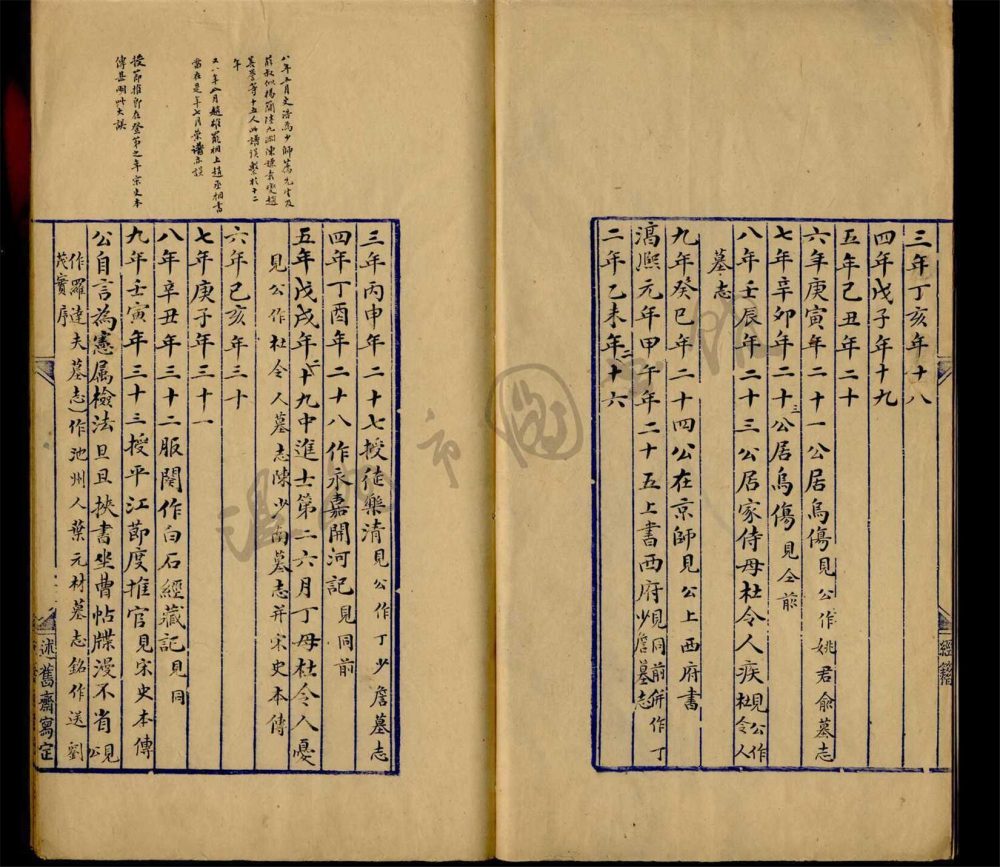 三年丁亥年十八
四年戊子年十九
五年己丑年二十
六年庚寅年二十一公居烏傷見公作姚君俞墓志
七年辛卯年二十二公居烏傷見仝前
八年壬辰年二十三公居家侍母杜令人疾見公作杜令人
墓志
九年癸巳年二十四公在京師見公上西府書
淳熙元年甲午年二十五上書西府見同前併作丁少詹墓志
二年乙未年二十六
經籍
八年三月史浩為少師薦先生及
薛叔似楊簡陸九淵陳謙袁燮趙
善譽等十五人此譜誤繫於十二
年
又八年八月趙雄罷相上趙丞相書
當在是年七月葉譜亦誤
授節推即在登第之年宗史本
傳甚明此大誤
三年丙申年二十七授徒樂清見公作丁少詹墓志
四年丁酉年二十八作永嘉開河記見同前
五年戊戌年二十九中進士第二六月丁母杜令人憂
見公作杜令人墓志陳少南墓志并宋史本傳
六年己亥年三十
七年庚子年三十一
八年辛丑年三十二服闋作白石經藏記見同
九年壬寅年三十三授平江節度推官見宋史本傳
公自言為憲屬檢法旦且挾書坐曹帖牒漫不省見公
作羅達夫墓志作池州人葉元材墓志銘作送劉
茂實序
述舊齋寫定
溫州市圖書館